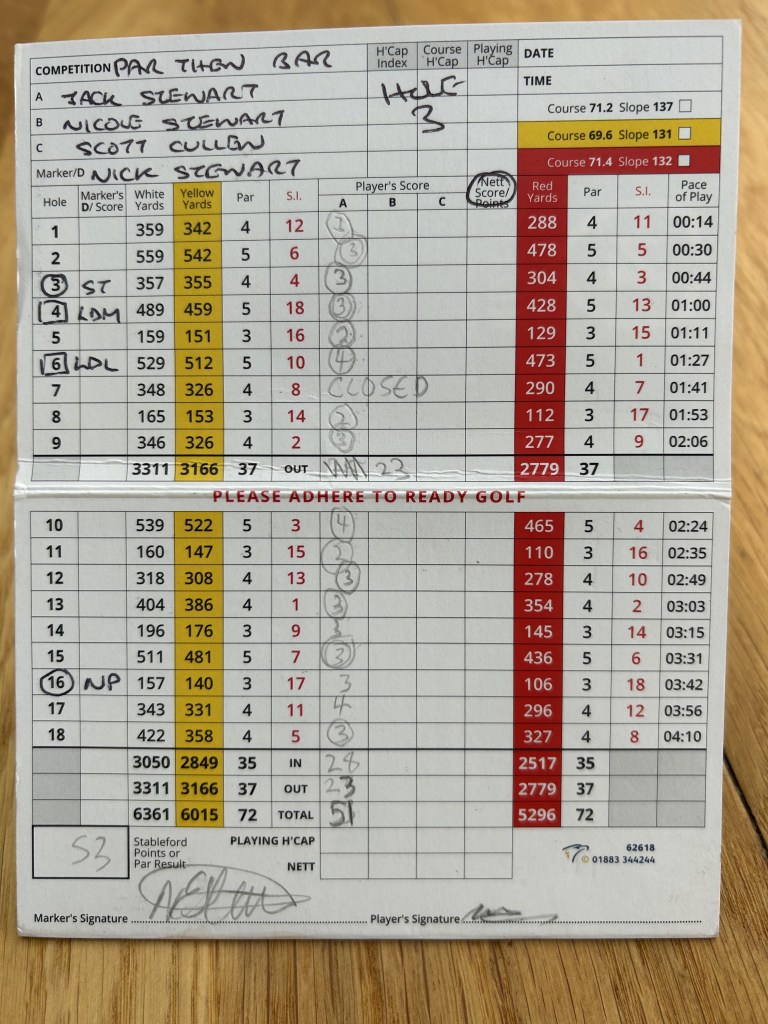 COMPETITION PAR THEN BAR H'Cap Index Course H'Cap Playing H'Cap DATE
A JACK STEWART HOLE TIME
B NICOLE STEWART 3 Course 71.2 Slope 137
C SCOTT CULLEN Course 69.6 Slope 131
Marker/D NICK STEWART Course 71.4 Slope 132
Hole Marker's D/Score White Yards Yellow Yards Par S.I. Player's Score A B C Nett Score/Points Red Yards Par S.I. Pace of Play
1 359 342 4 12 3 288 4 11 00:14
2 559 542 5 6 3 478 5 5 00:30
3 ST 357 355 4 4 3 304 4 3 00:44
4 LDM 489 459 5 18 3 428 5 13 01:00
5 159 151 3 16 2 129 3 15 01:11
6 LDL 529 512 5 10 4 473 5 1 01:27
7 348 326 4 8 CLOSED 290 4 7 01:41
8 165 153 3 14 2 112 3 17 01:53
9 346 326 4 2 3 277 4 9 02:06
3311 3166 37 OUT 23 2779 37
PLEASE ADHERE TO READY GOLF
10 539 522 5 3 4 465 5 4 02:24
11 160 147 3 15 2 110 3 16 02:35
12 318 308 4 13 3 278 4 10 02:49
13 404 386 4 1 3 354 4 2 03:03
14 196 176 3 9 3 145 3 14 03:15
15 511 481 5 7 3 436 5 6 03:31
16 NP 157 140 3 17 3 106 3 18 03:42
17 343 331 4 11 4 296 4 12 03:56
18 422 358 4 5 3 327 4 8 04:10
3050 2849 35 IN 28 2517 35
3311 3166 37 OUT 23 2779 37
6361 6015 72 TOTAL 51 5296 72
53 Stableford Points or Par Result PLAYING H'CAP
NETT
62618
© 01883 344244
Marker's Signature Player's Signature